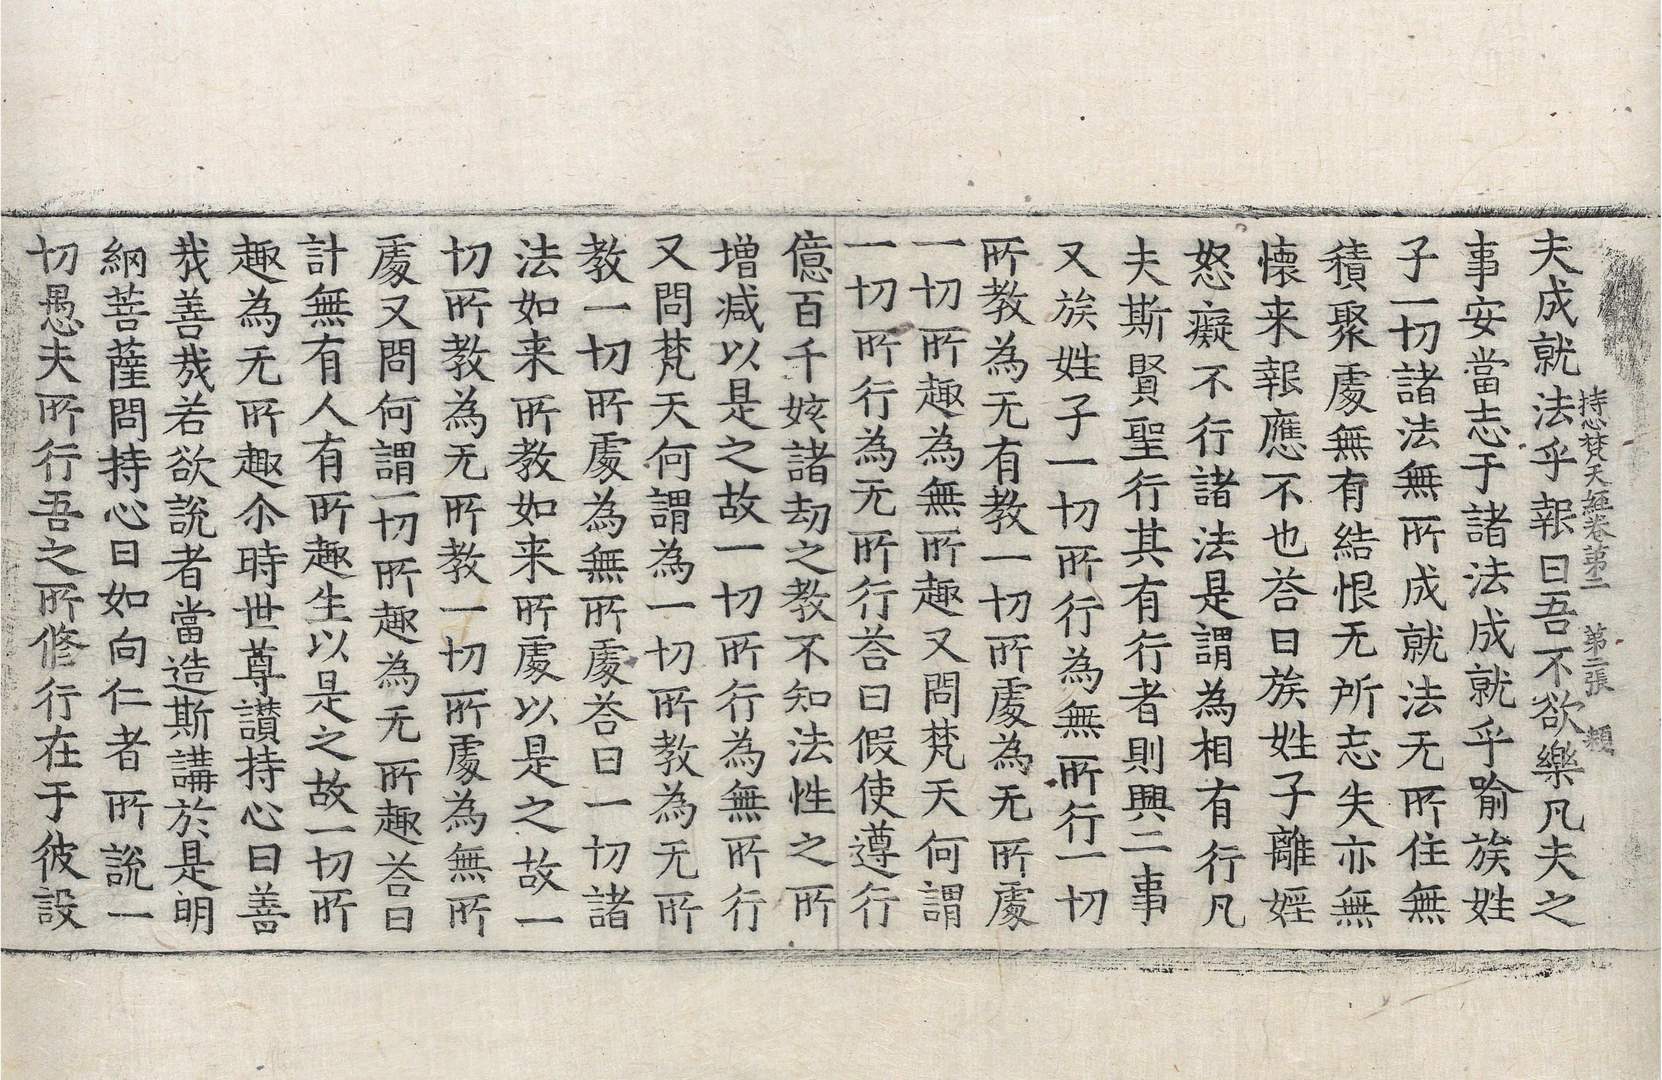 持心梵天經卷第二 第二張 類
夫成就法乎報曰吾不欲樂凡夫之
事安當志于諸法成就乎喻族姓
子一切諸法無所成就法无所住無
積聚處無有結恨无所忘失亦無
懷来報應不也荅曰族姓子離婬
怒癡不行諸法是謂為相有行凡
夫斯賢聖行其有行者則興二事
又族姓子一切所行為無所行一切
所教為无有教一切所處為无所處
一切所趣為無所趣又問梵天何謂
一切所行為无所行荅曰假使遵行
億百千姟諸劫之教不知法性之所
増减以是之故一切所行為無所行
又問梵天何謂為一切所教為无所
教一切所處為無所處荅曰一切諸
法如来所教如来所處以是之故一
切所教為无所教一切所處為無所
處又問何謂一切所趣為无所趣荅曰
計無有人有所趣生以是之故一切所
趣為无所趣尒時世尊讃持心曰善
㦲善㦲若欲說者當造斯講於是明
網菩薩問持心曰如向仁者所說一
切愚夫所行吾之所修行在于彼設